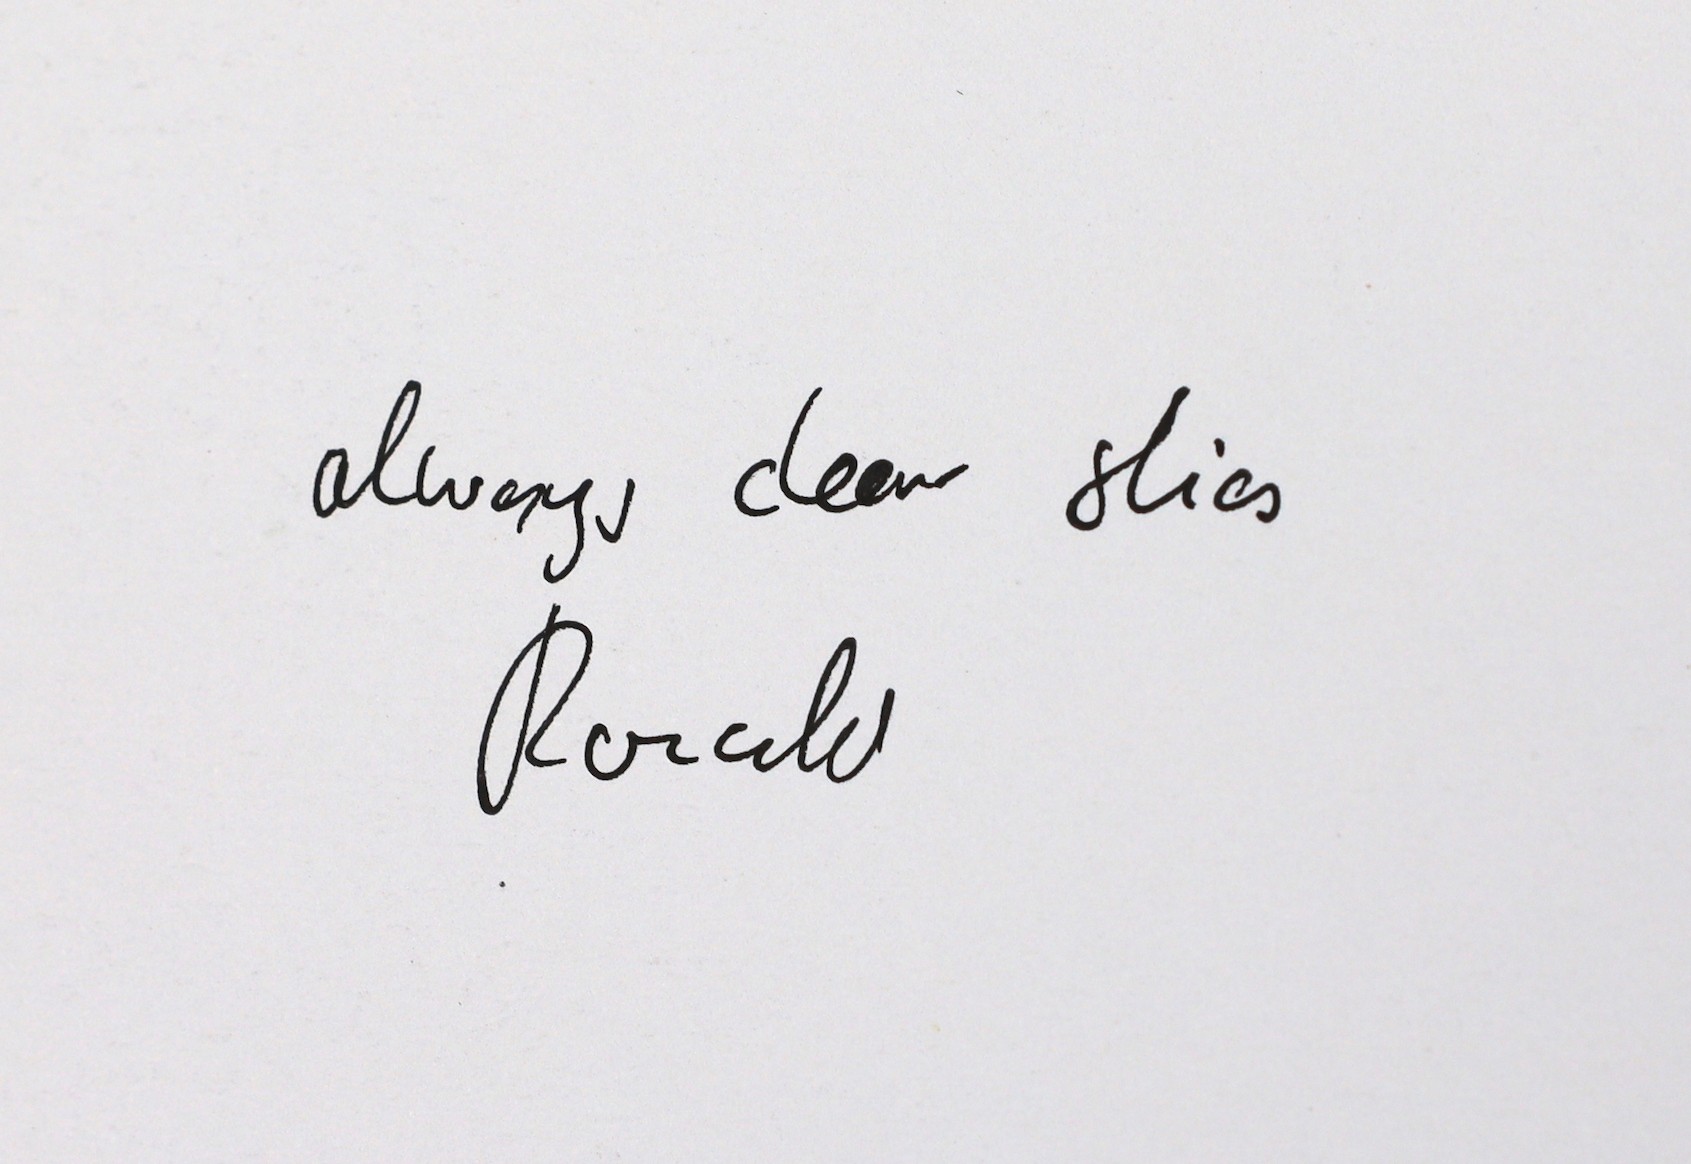 always clear skies
Ronald